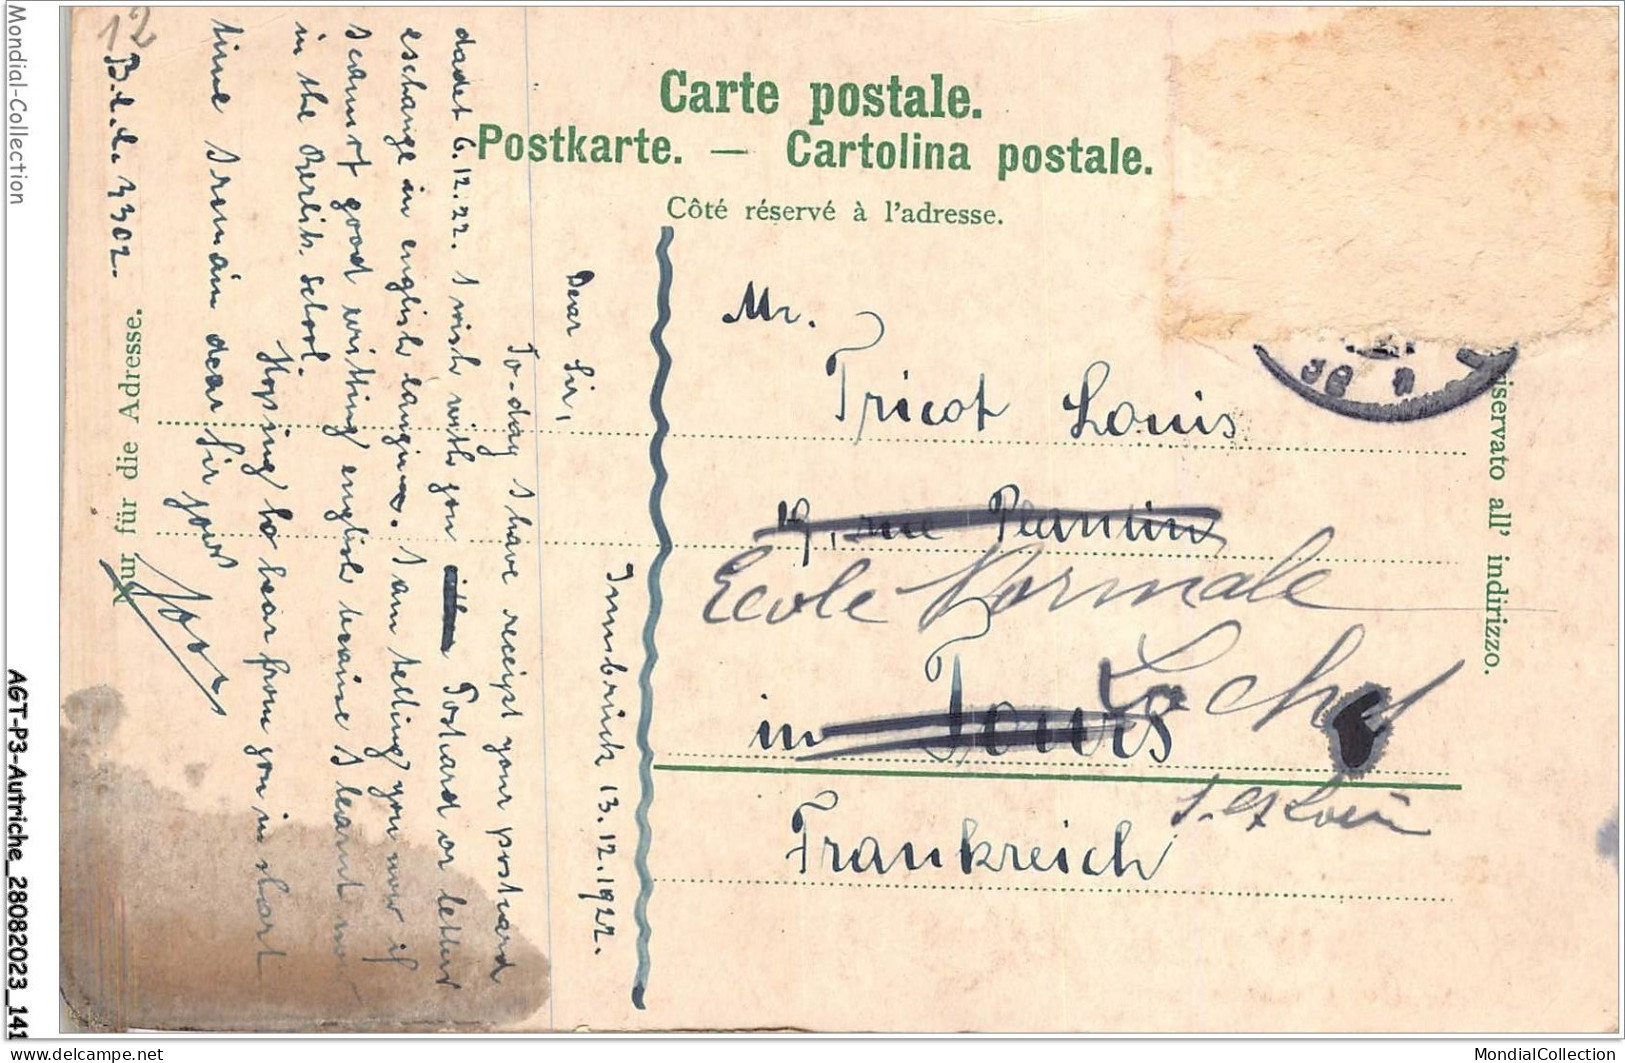 Carte postale.
Postkarte. — Cartolina postale.
Côté réservé à l'adresse.
Nur für die Adresse.
riservato all' indirizzo.
Mr.
Tricot Louis
19, rue Plantin
Ecole Normale
in Tours
Loches
I. et Loire
Frankreich
12
B.L.L. 3302.
Innsbruck 13.12.1922.
Dear Sir,
To-day I have receipt your postcard
dadet 6.12.22. I wish with you Postcard or letter
eschange in english langue. I am telling you now if
I cannot good writting english because I learnt
in the Berlitz school.
Hopsing to hear from you in short
time I remain dear Sir your
Mondial-Collection
AGT-P3-Autriche_28082023_141
www.delcampe.net
MondialCollection